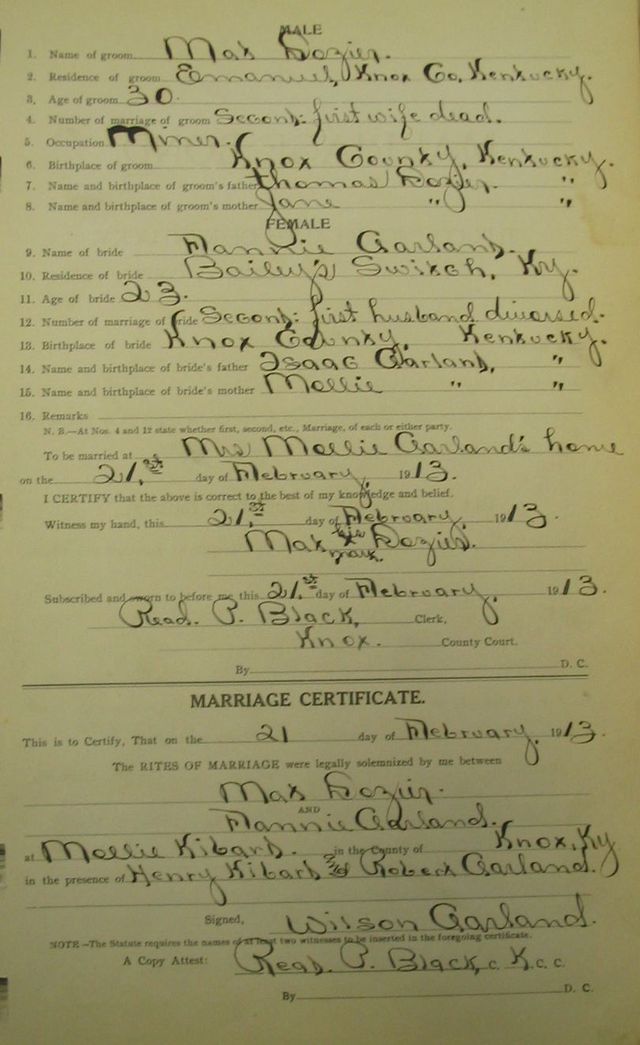 MALE
1. Name of groom Mat Dozier.
2. Residence of groom Emanuel, Knox Co, Kentucky.
3. Age of groom 30.
4. Number of marriage of groom Second: first wife dead.
5. Occupation Miner.
6. Birthplace of groom Knox County, Kentucky.
7. Name and birthplace of groom's father Thomas Dozier. "
8. Name and birthplace of groom's mother Jane " "
FEMALE
9. Name of bride Flannie Garland.
10. Residence of bride Bailey's Switch, Ky.
11. Age of bride 23.
12. Number of marriage of bride Second: first husband divorsed.
13. Birthplace of bride Knox County, Kentucky.
14. Name and birthplace of bride's father Isaac Garland, "
15. Name and birthplace of bride's mother Mollie " "
16. Remarks
N. B.—At Nos. 4 and 12 state whether first, second, etc., Marriage, of each or either party.
To be married at Mrs Mollie Garland's home
on the 21st day of February, 1913.
I CERTIFY that the above is correct to the best of my knowledge and belief.
Witness my hand, this 21st day of February, 1913
Mat his x mark Dozier.
Subscribed and sworn to before me this 21st day of February, 1913.
Read. P. Black, Clerk,
Knox. County Court.
By D. C.
MARRIAGE CERTIFICATE.
This is to Certify, That on the 21 day of February, 1913.
The RITES OF MARRIAGE were legally solemnized by me between
Mat Dozier.
AND
Flannie Garland.
at Mollie in the County of Knox, Ky
in the presence of Henry & Robert Garland.
Signed, Wilson Garland.
NOTE—The Statute requires the names of at least two witnesses to be inserted in the foregoing certificate.
A Copy Attest: Read. P. Black, C. K. C. C.
By D. C.